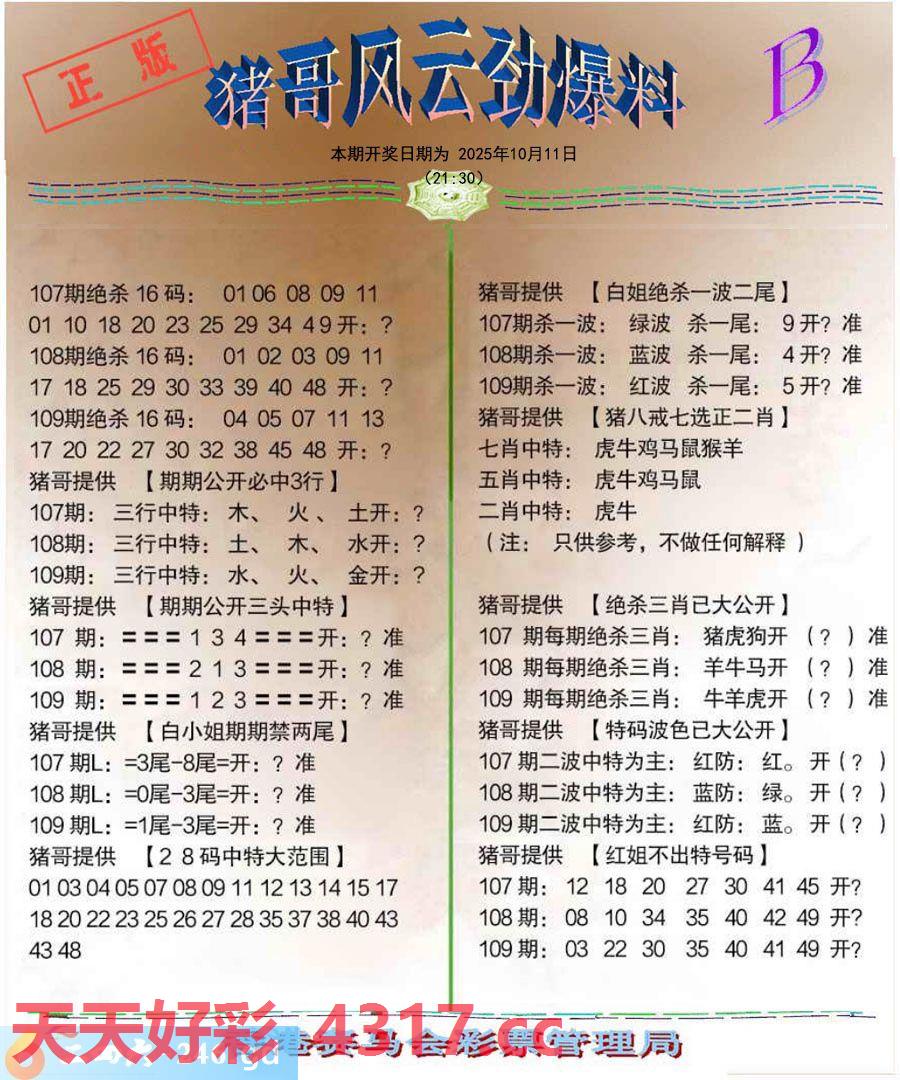 正版
猪哥风云劲爆料
B
本期开奖日期为 2025年10月11日
（21:30）
107期绝杀 16 码： 01 06 08 09 11
01 10 18 20 23 25 29 34 49 开：?
108期绝杀 16 码： 01 02 03 09 11
17 18 25 29 30 33 39 40 48 开：?
109期绝杀 16 码： 04 05 07 11 13
17 20 22 27 30 32 38 45 48 开：?
猪哥提供 【期期公开必中3行】
107期： 三行中特： 木、 火 、 土开：?
108期： 三行中特： 土、 木、 水开：?
109期： 三行中特： 水、 火、 金开：?
猪哥提供 【期期公开三头中特】
107 期：=== 1 3 4 ===开：? 准
108 期：=== 2 1 3 ===开：? 准
109 期：=== 1 2 3 ===开：? 准
猪哥提供 【白小姐期期禁两尾】
107 期L：=3尾-8尾=开：? 准
108 期L：=0尾-3尾=开：? 准
109 期L：=1尾-3尾=开：? 准
猪哥提供 【２８码中特大范围】
01 03 04 05 07 08 09 11 12 13 14 15 17
18 20 22 23 25 26 27 28 35 37 38 40 43
43 48
猪哥提供 【白姐绝杀一波二尾】
107期杀一波： 绿波 杀一尾： 9 开? 准
108期杀一波： 蓝波 杀一尾： 4 开? 准
109期杀一波： 红波 杀一尾： 5 开? 准
猪哥提供 【猪八戒七选正二肖】
七肖中特： 虎牛鸡马鼠猴羊
五肖中特： 虎牛鸡马鼠
二肖中特： 虎牛
（注： 只供参考，不做任何解释 ）
猪哥提供 【绝杀三肖已大公开】
107 期每期绝杀三肖： 猪虎狗开 （? ）准
108 期每期绝杀三肖： 羊牛马开 （? ）准
109 期每期绝杀三肖： 牛羊虎开 （? ）准
猪哥提供 【特码波色已大公开】
107 期二波中特为主： 红防： 红。 开（? ）
108 期二波中特为主： 蓝防： 绿。 开（? ）
109 期二波中特为主： 红防： 蓝。 开（? ）
猪哥提供 【红姐不出特号码】
107 期： 12 18 20 27 30 41 45 开?
108 期： 08 10 34 35 40 42 49 开?
109 期： 03 22 30 35 40 41 49 开?
天天好彩 4317.cc
港赛马会彩票管理局